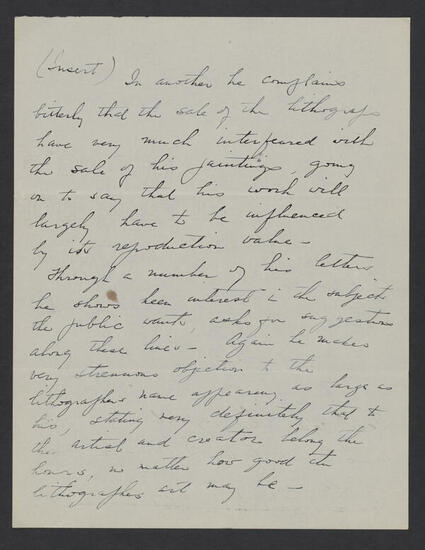 (Insert)
In another he complains
bitterly that the sale of the lithograps
have very much interfeured with
the sale of his paintings, going
on to say that his work will
largely have to be influenced
by its reproduction value –
Through a number of his letters
he shows keen interest in the subjects
the public wants, asks for suggestions
along these lines – Again he makes
very strenuous objection to the
lithographers name appearing as large as
his, stating very definitely that to
the artist and creator belong the
honors, no matter how good the
lithographers art may be –